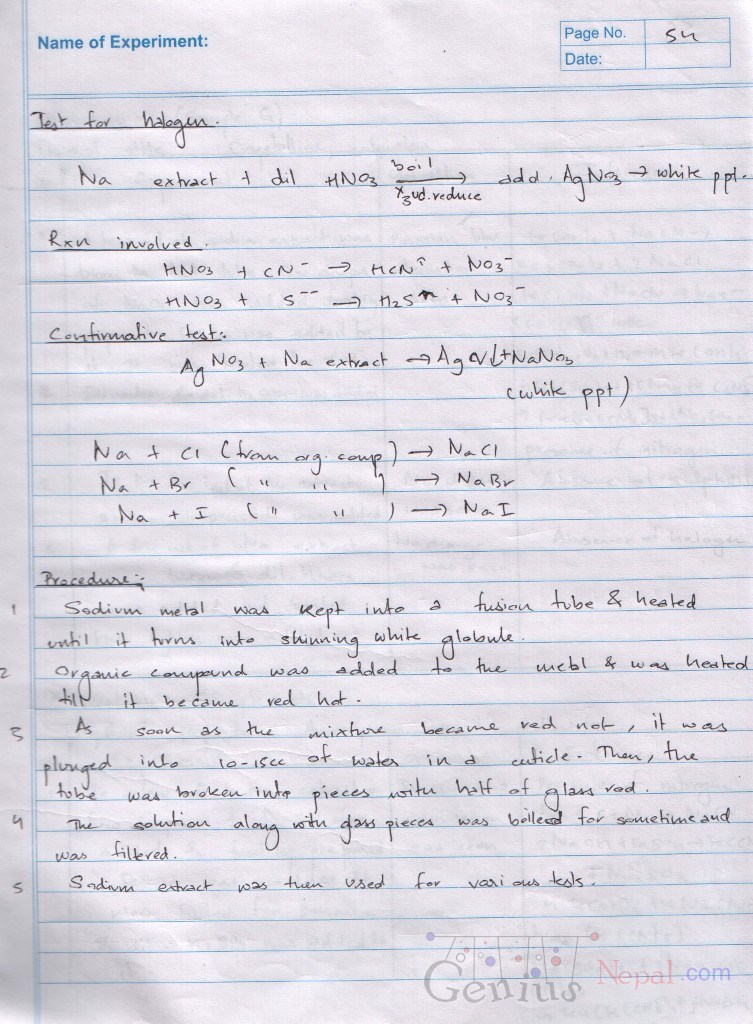 Name of Experiment:
Page No. 54
Date:
Test for halogen.
Na extract + dil HNO3 boil → add. AgNO3 → white ppt.
reduce
Rxn involved.
HNO3 + CN⁻ → HCN↑ + NO3⁻
HNO3 + S⁻⁻ → H2S↑ + NO3⁻
Confirmative test:
AgNO3 + Na extract → AgCl↓ + NaNO3
(white ppt)
Na + Cl (from org. comp) → NaCl
Na + Br ( " " ) → NaBr
Na + I ( " " ) → NaI
Procedure:
1 Sodium metal was kept into a fusion tube & heated
until it turns into shinning white globule.
2 Organic compound was added to the metal & was heated
till it became red hot.
3 As soon as the mixture became red hot, it was
plunged into 10-15cc of water in a cuticle. Then, the
tube was broken into pieces with half of glass rod.
4 The solution along with glass pieces was boiled for sometime and
was filtered.
5 Sodium extract was then used for various tests.
Genius Nepal.com